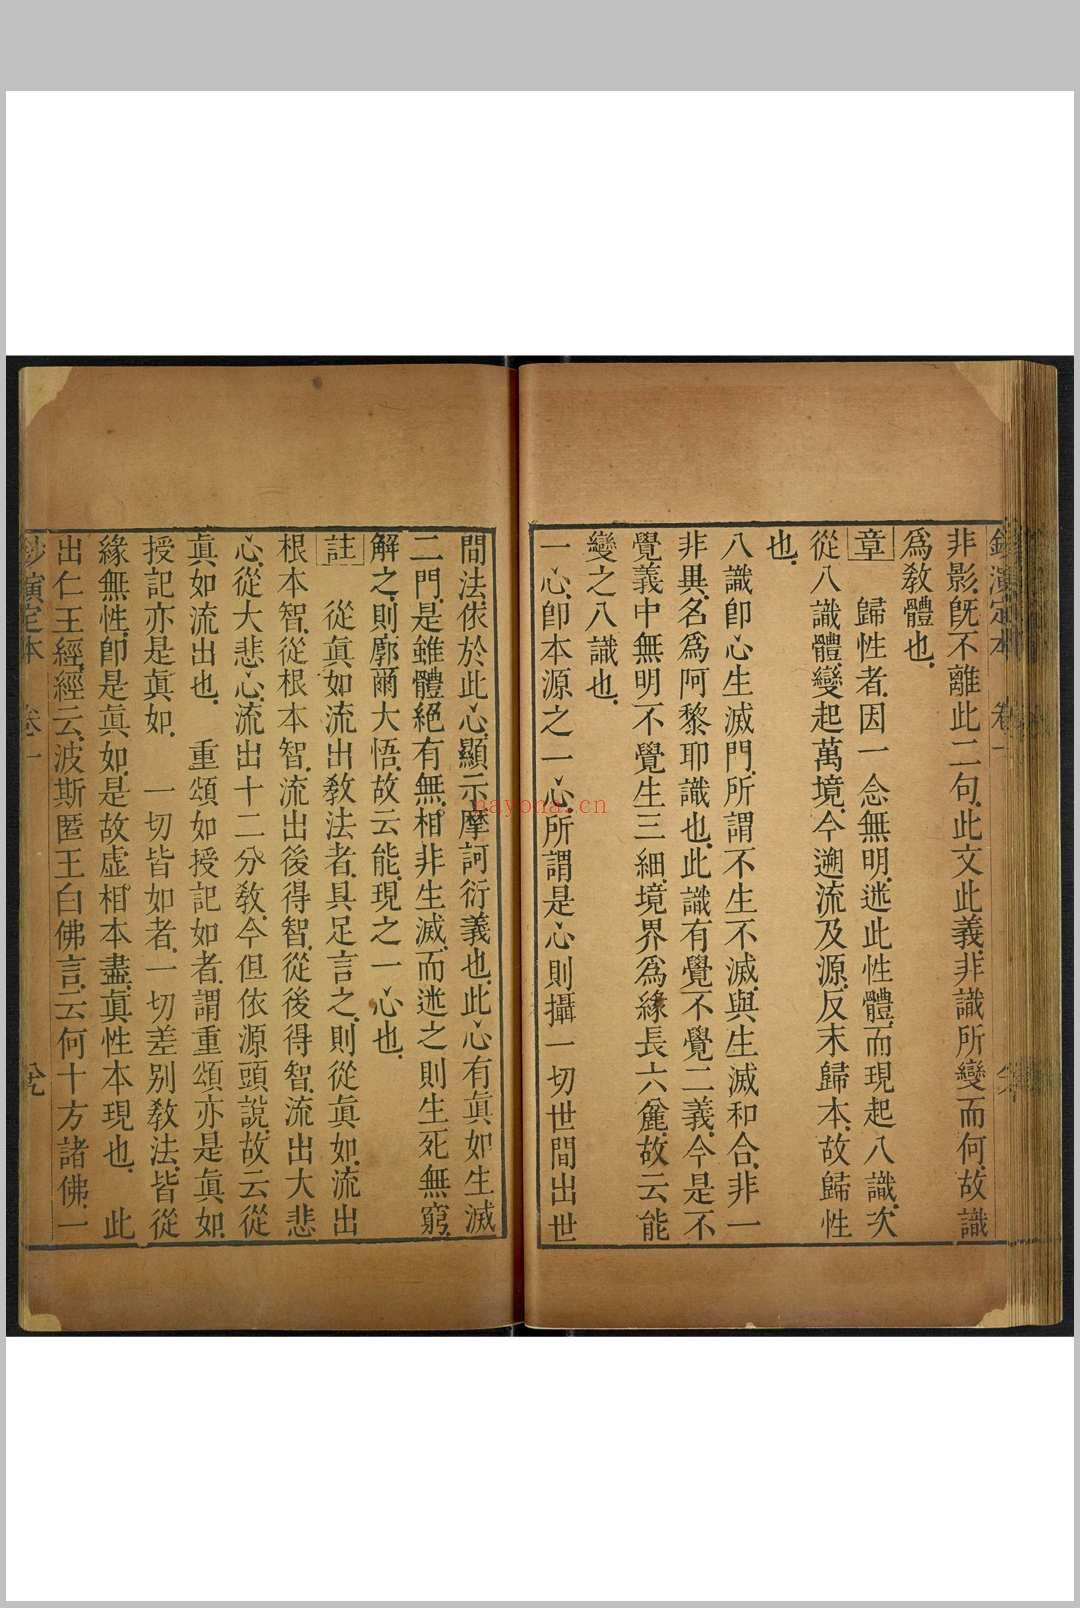 鈔演定本 卷一
非影旣不離此二句此文此義非識所變而何故識
爲教體也
章 歸性者因一念無明迷此性體而現起八識次
從八識體變起萬境今遡流及源反末歸本故歸性
也
八識卽心生滅門所謂不生不滅與生滅和合非一
非異名爲阿黎耶識也此識有覺不覺二義今是不
覺義中無明不覺生三細境界爲緣長六麤故云能
變之八識也
一心卽本源之一心所謂是心則攝一切世間出世
間法依於此心顯示摩訶衍義也此心有眞如生滅
二門是雖體絕有無相非生滅而迷之則生死無窮
解之則廓爾大悟故云能現之一心也
註 從眞如流出敎法者具足言之則從眞如流出
根本智從根本智流出後得智從後得智流出大悲
心從大悲心流出十二分敎今但依源頭說故云從
眞如流出也 重頌如授記如者謂重頌亦是眞如
授記亦是眞如 一切皆如者一切差别敎法皆從
緣無性卽是眞如是故虛相本盡眞性本現也 此
出仁王經經云波斯匿王白佛言云何十方諸佛一
鈔演定本 卷一
nayona.cn